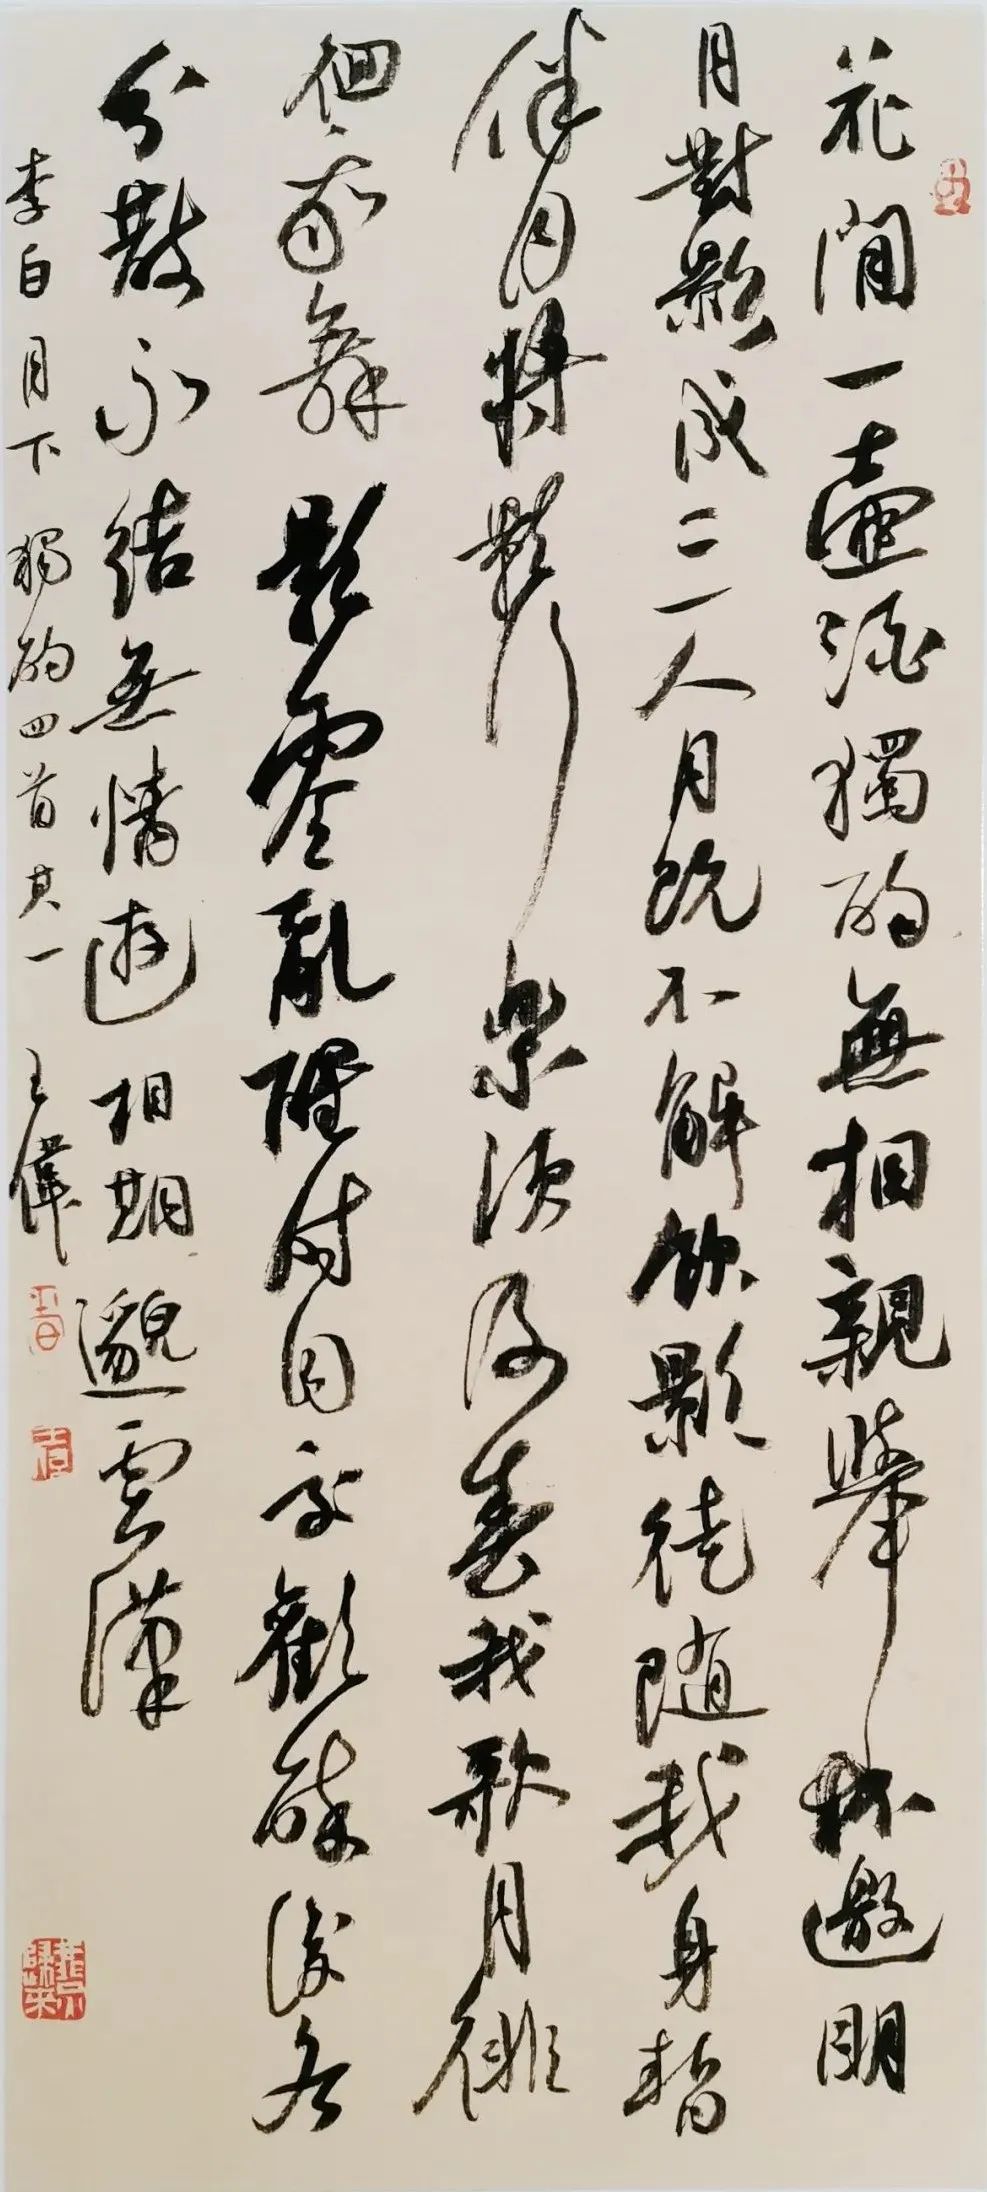 花間一壺酒獨酌無相親舉杯邀明
月對影成三人月既不解飲影徒随我身暫
伴月將影行樂須及春我歌月徘
徊我舞影零亂醒時同交歡醉後各
分散永結無情遊相期邈雲漢
李白月下獨酌四首其一 王偉